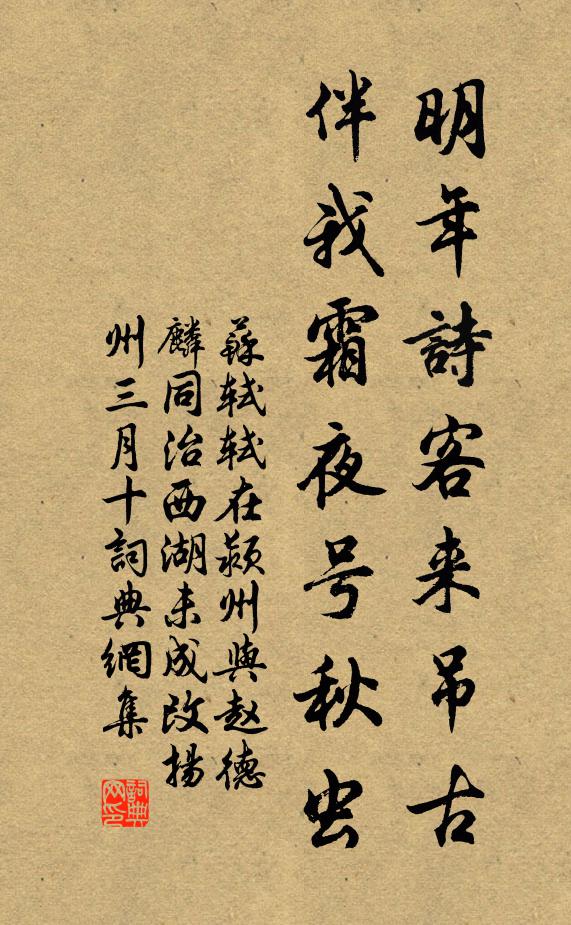 明年詩客来吊古
伴我霜夜号秋虫
蘇轼轼在颍州與赵德
麟同治西湖未成改揚
州三月十詞典網集
詞典
网印